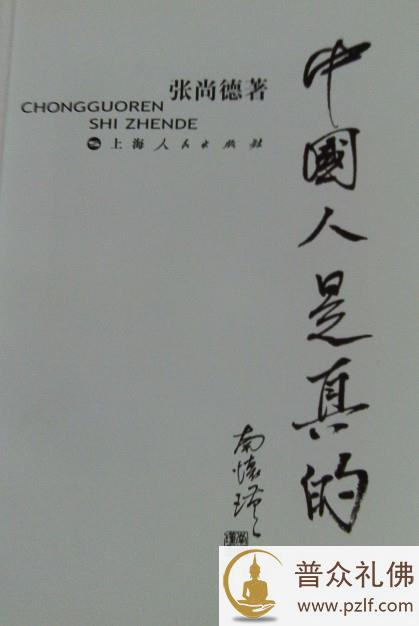 中國人是真的
张尚德著
CHONGGUOREN
SHI ZHENDE
上海人民出版社
南懷瑾
普众礼佛
www.pzlf.com